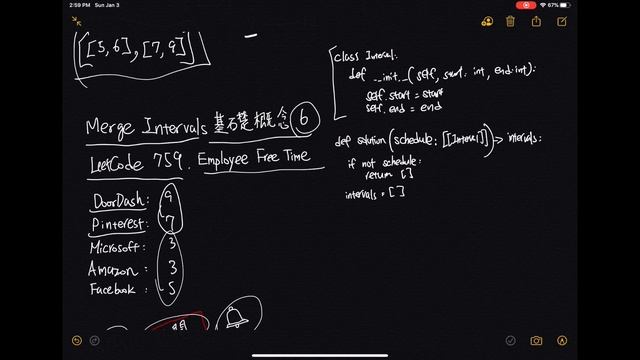 2:59 PM Sun Jan 3
67%
[[5,6],[7,9]]
Merge Intervals 基礎概念 6
LeetCode 759. Employee Free Time
DoorDash: 9
Pinterest: 7
Microsoft: 3
Amazon: 3
Facebook: 5
class Interval:
def __init__(self, start: int, end: int):
self.start = start
self.end = end
def solution(schedule: [[Interval]]) -> intervals:
if not schedule:
return []
intervals = []